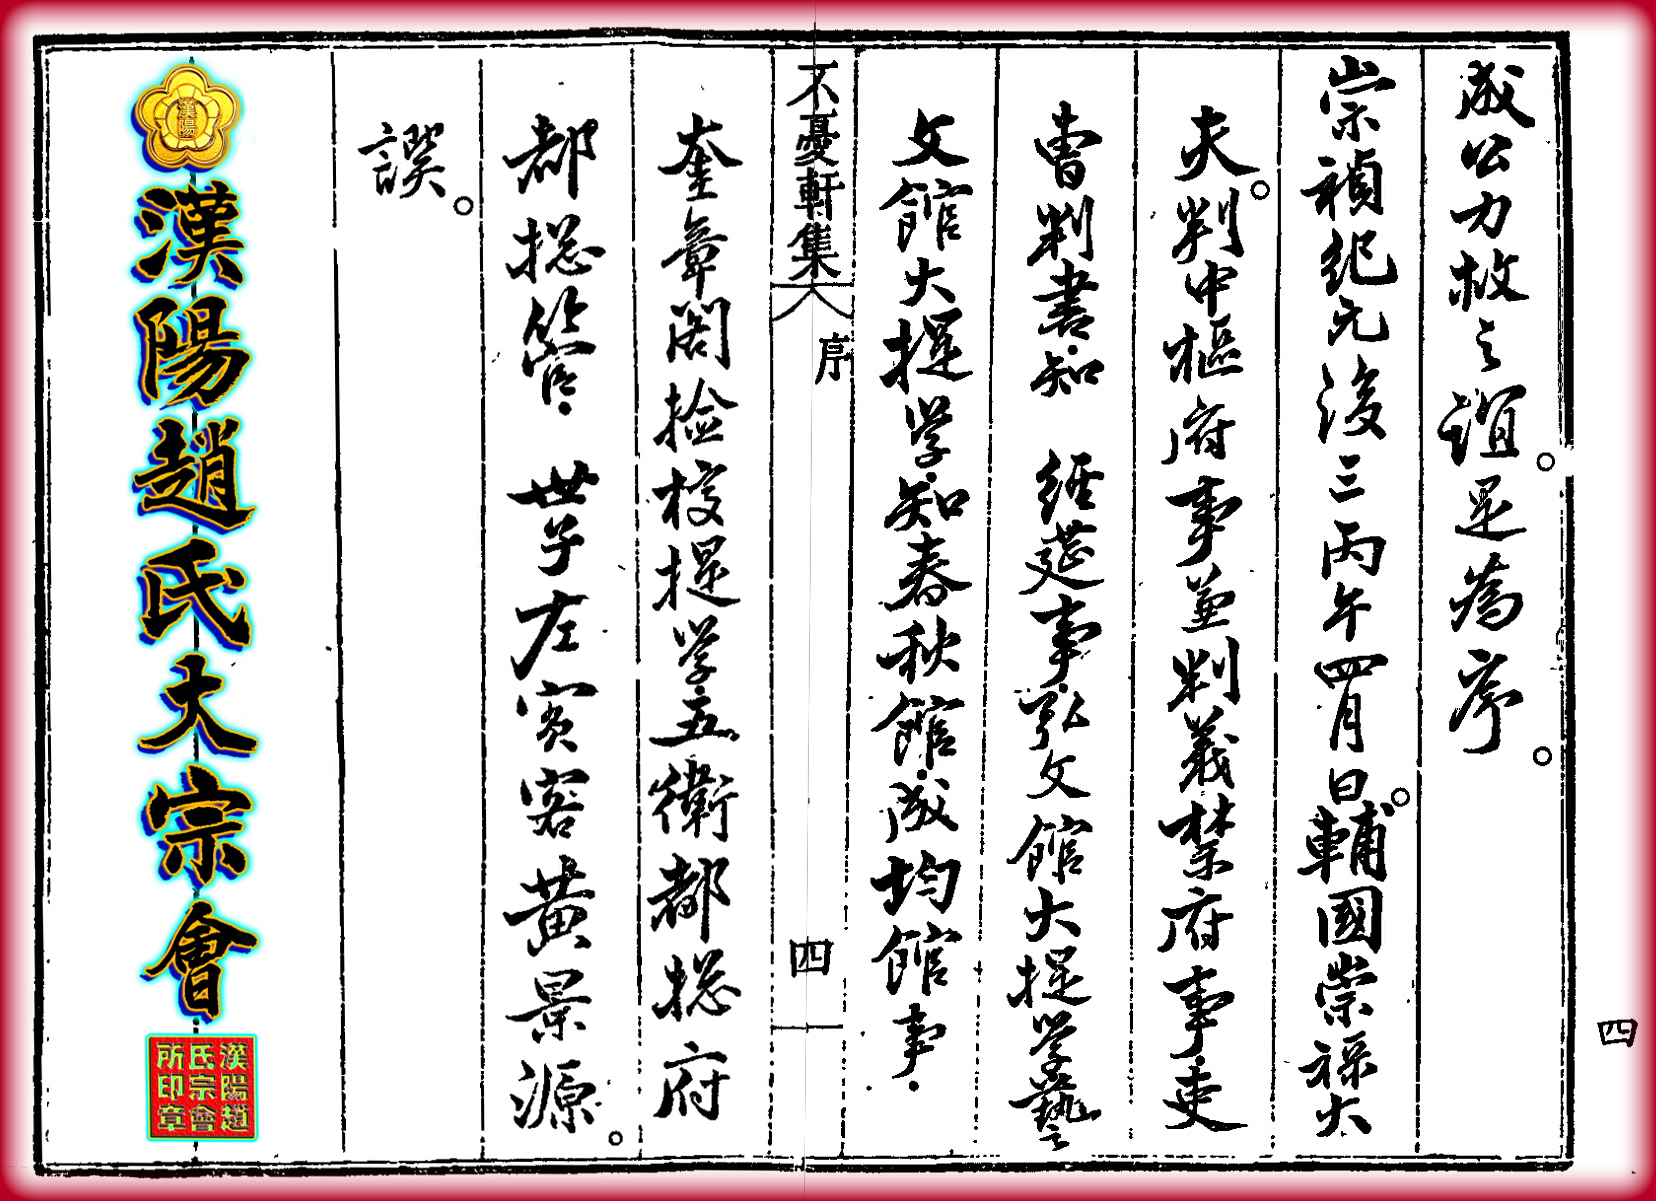 成公力救之誼是為序
崇禎紀元後三丙午四月日輔國崇祿大
夫判中樞府事兼判義禁府事吏
曹判書知 經筵事弘文館大提學藝
文館大提學知春秋館成均館事
不憂軒集
序
四
奎章閣檢校提學五衛都摠府
都摠管 世子左賓客黃景源
譔
漢陽
漢陽趙氏大宗會
漢陽趙
氏宗會
所印章
四